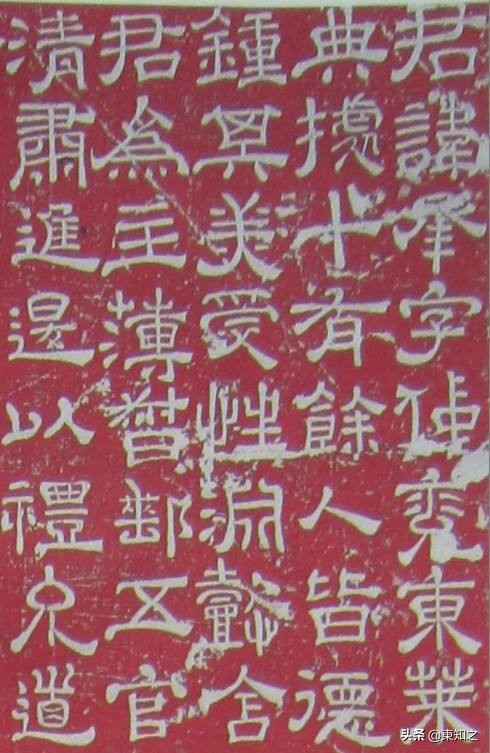 君諱承字仲兖東萊
典據十有餘人皆德
鍾其美受性淵懿含
君為主薄督郵五官
清肅進退以禮允道
头条 @東知之